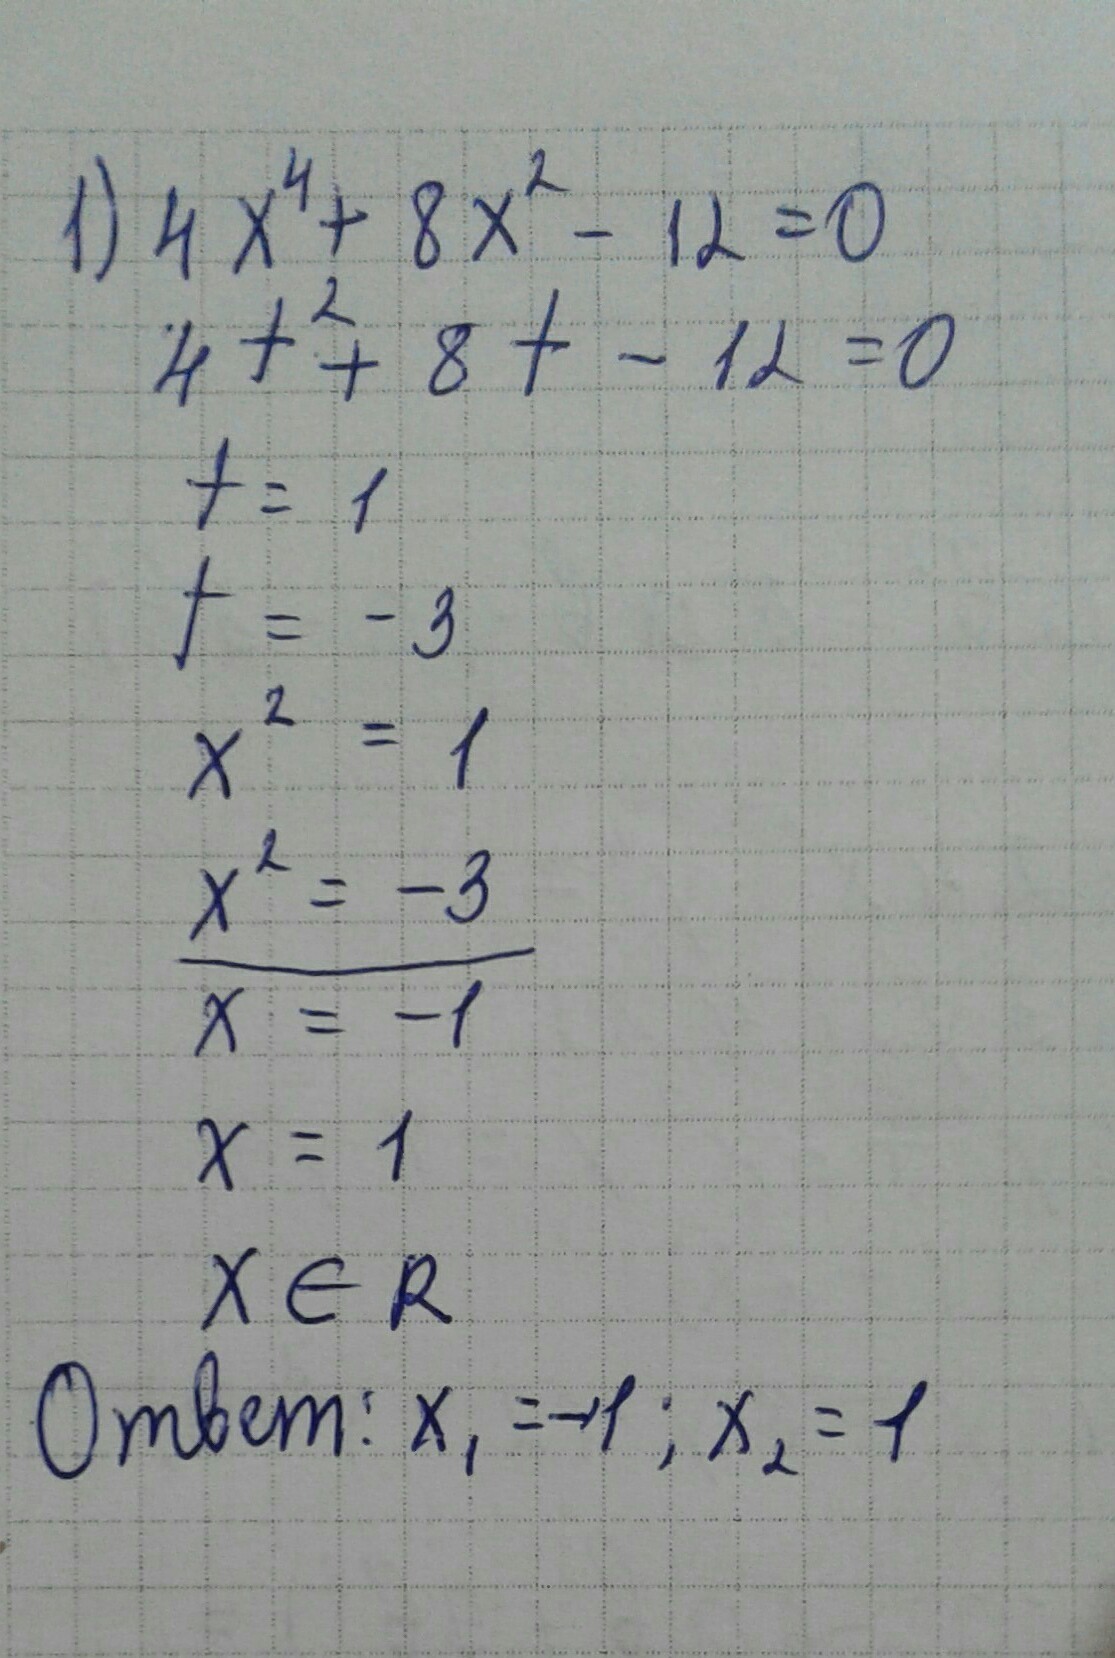 1) 4x⁴ + 8x² - 12 = 0
4t² + 8t - 12 = 0
t = 1
t = -3
x² = 1
x² = -3
x = -1
x = 1
x ∈ R
Ответ: x₁ = -1; x₂ = 1